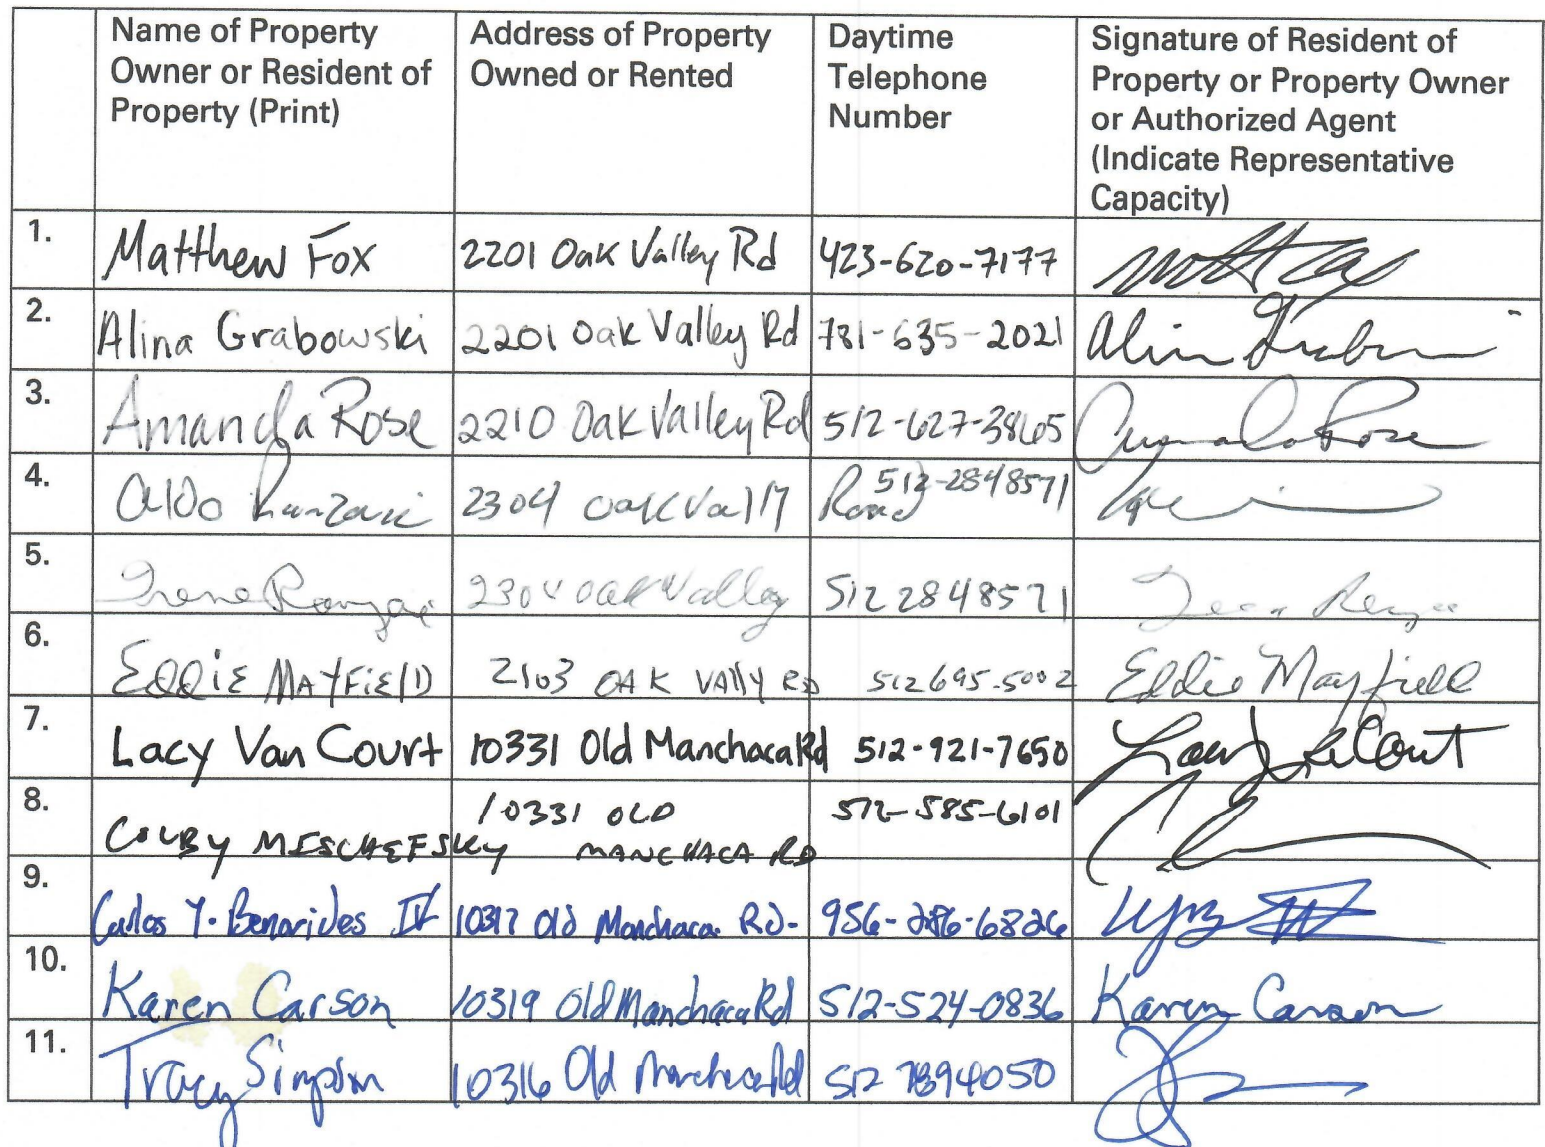 Name of Property
Owner or Resident of
Property (Print)
Address of Property
Owned or Rented
Daytime
Telephone
Number
Signature of Resident of
Property or Property Owner
or Authorized Agent
(Indicate Representative
Capacity)
1. Matthew Fox 2201 Oak Valley Rd 423-620-7177
2. Alina Grabowski 2201 Oak Valley Rd 781-635-2021
3. Amanda Rose 2210 Oak Valley Rd 512-627-3865 Amanda Rose
4. Aldo 2304 Oak Vally Road 512-2848571
5. Irene 2304 Oak Valley 512 2848571
6. EDDiE MAYFiElD 2103 OAK VAllY RD 512 695-5002 Eddie Mayfield
7. Lacy Van Court 10331 Old Manchaca Rd 512-921-7650
8. COLBY MESCHEFSKY 10331 OLD MANCHACA RD 512-585-6101
9. Carlos Y. Benavides IV 10317 Old Manchaca Rd. 956-286-6826
10. Karen Carson 10319 Old Manchaca Rd 512-524-0836 Karen Carson
11. Tracy Simpson 10316 Old Manchaca Rd 512 7894050